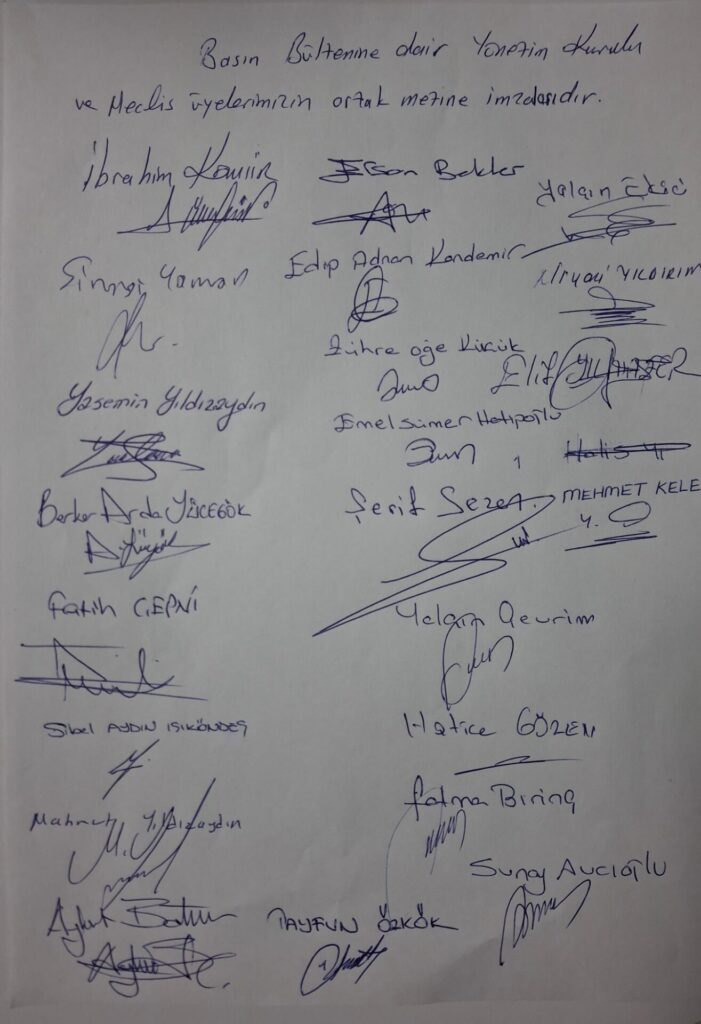 Basın Bültenine dair Yönetim Kurulu
ve Meclis üyelerimizin ortak metine imzasıdır.
İbrahim
Ersan Bekler
Yalçın Ekici
Yaman
Edip Adnan Kandemir
YILDIRIM
Zühre öğe Küçük
Elif
Yasemin Yıldızaydın
Emel Sümer Hatipoğlu
Halis
Berker Arda YÜCEGÖK
Şerif Sezer
MEHMET KELE
Fatih ÇEPNİ
Yalçın Çevrim
Sibel AYDIN IŞIKÖNDEŞ
Hatice GÖZEN
Mahmut Yıldızaydın
Fatma Birinç
Sunay Avcıoğlu
Aykut
TAYFUN ÖZKÖK